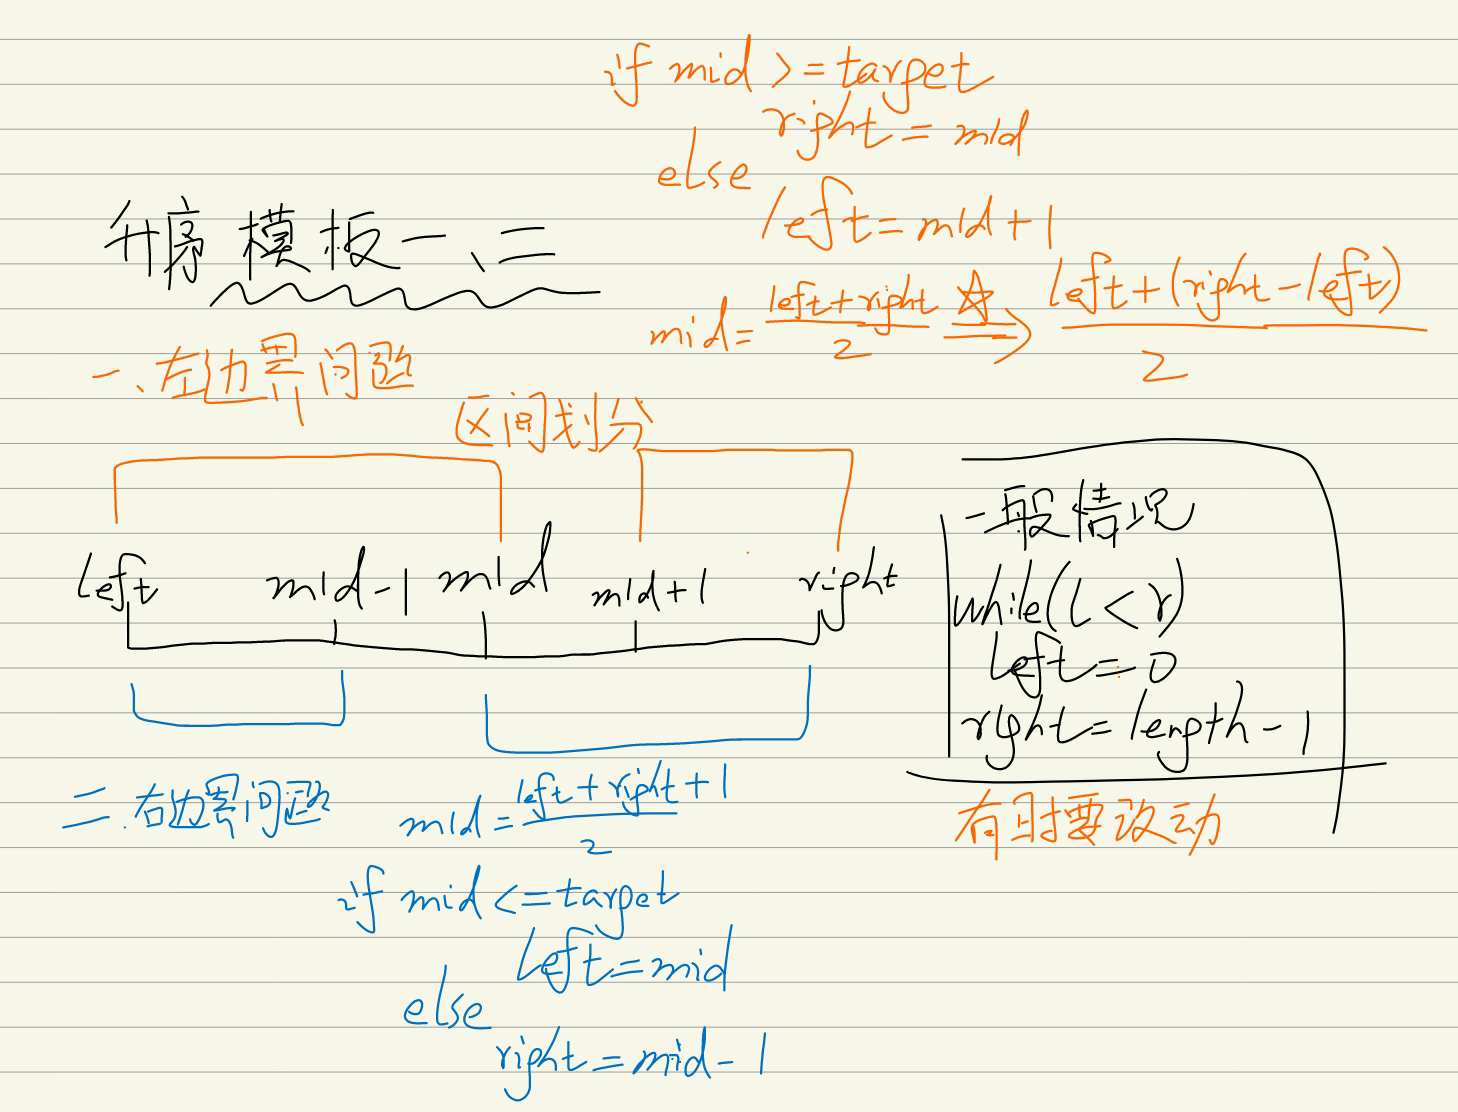 if mid >= target
right = mid
else
left = mid + 1
升序模板一、二
mid = (left + right) / 2 ☆⇒ (left + (right - left)) / 2
一、左边界问题
区间划分
left mid-1 mid mid+1 right
一般情况
while(l < r)
left = 0
right = length - 1
有时要改动
二.右边界问题
mid = (left + right + 1) / 2
if mid <= target
left = mid
else
right = mid - 1